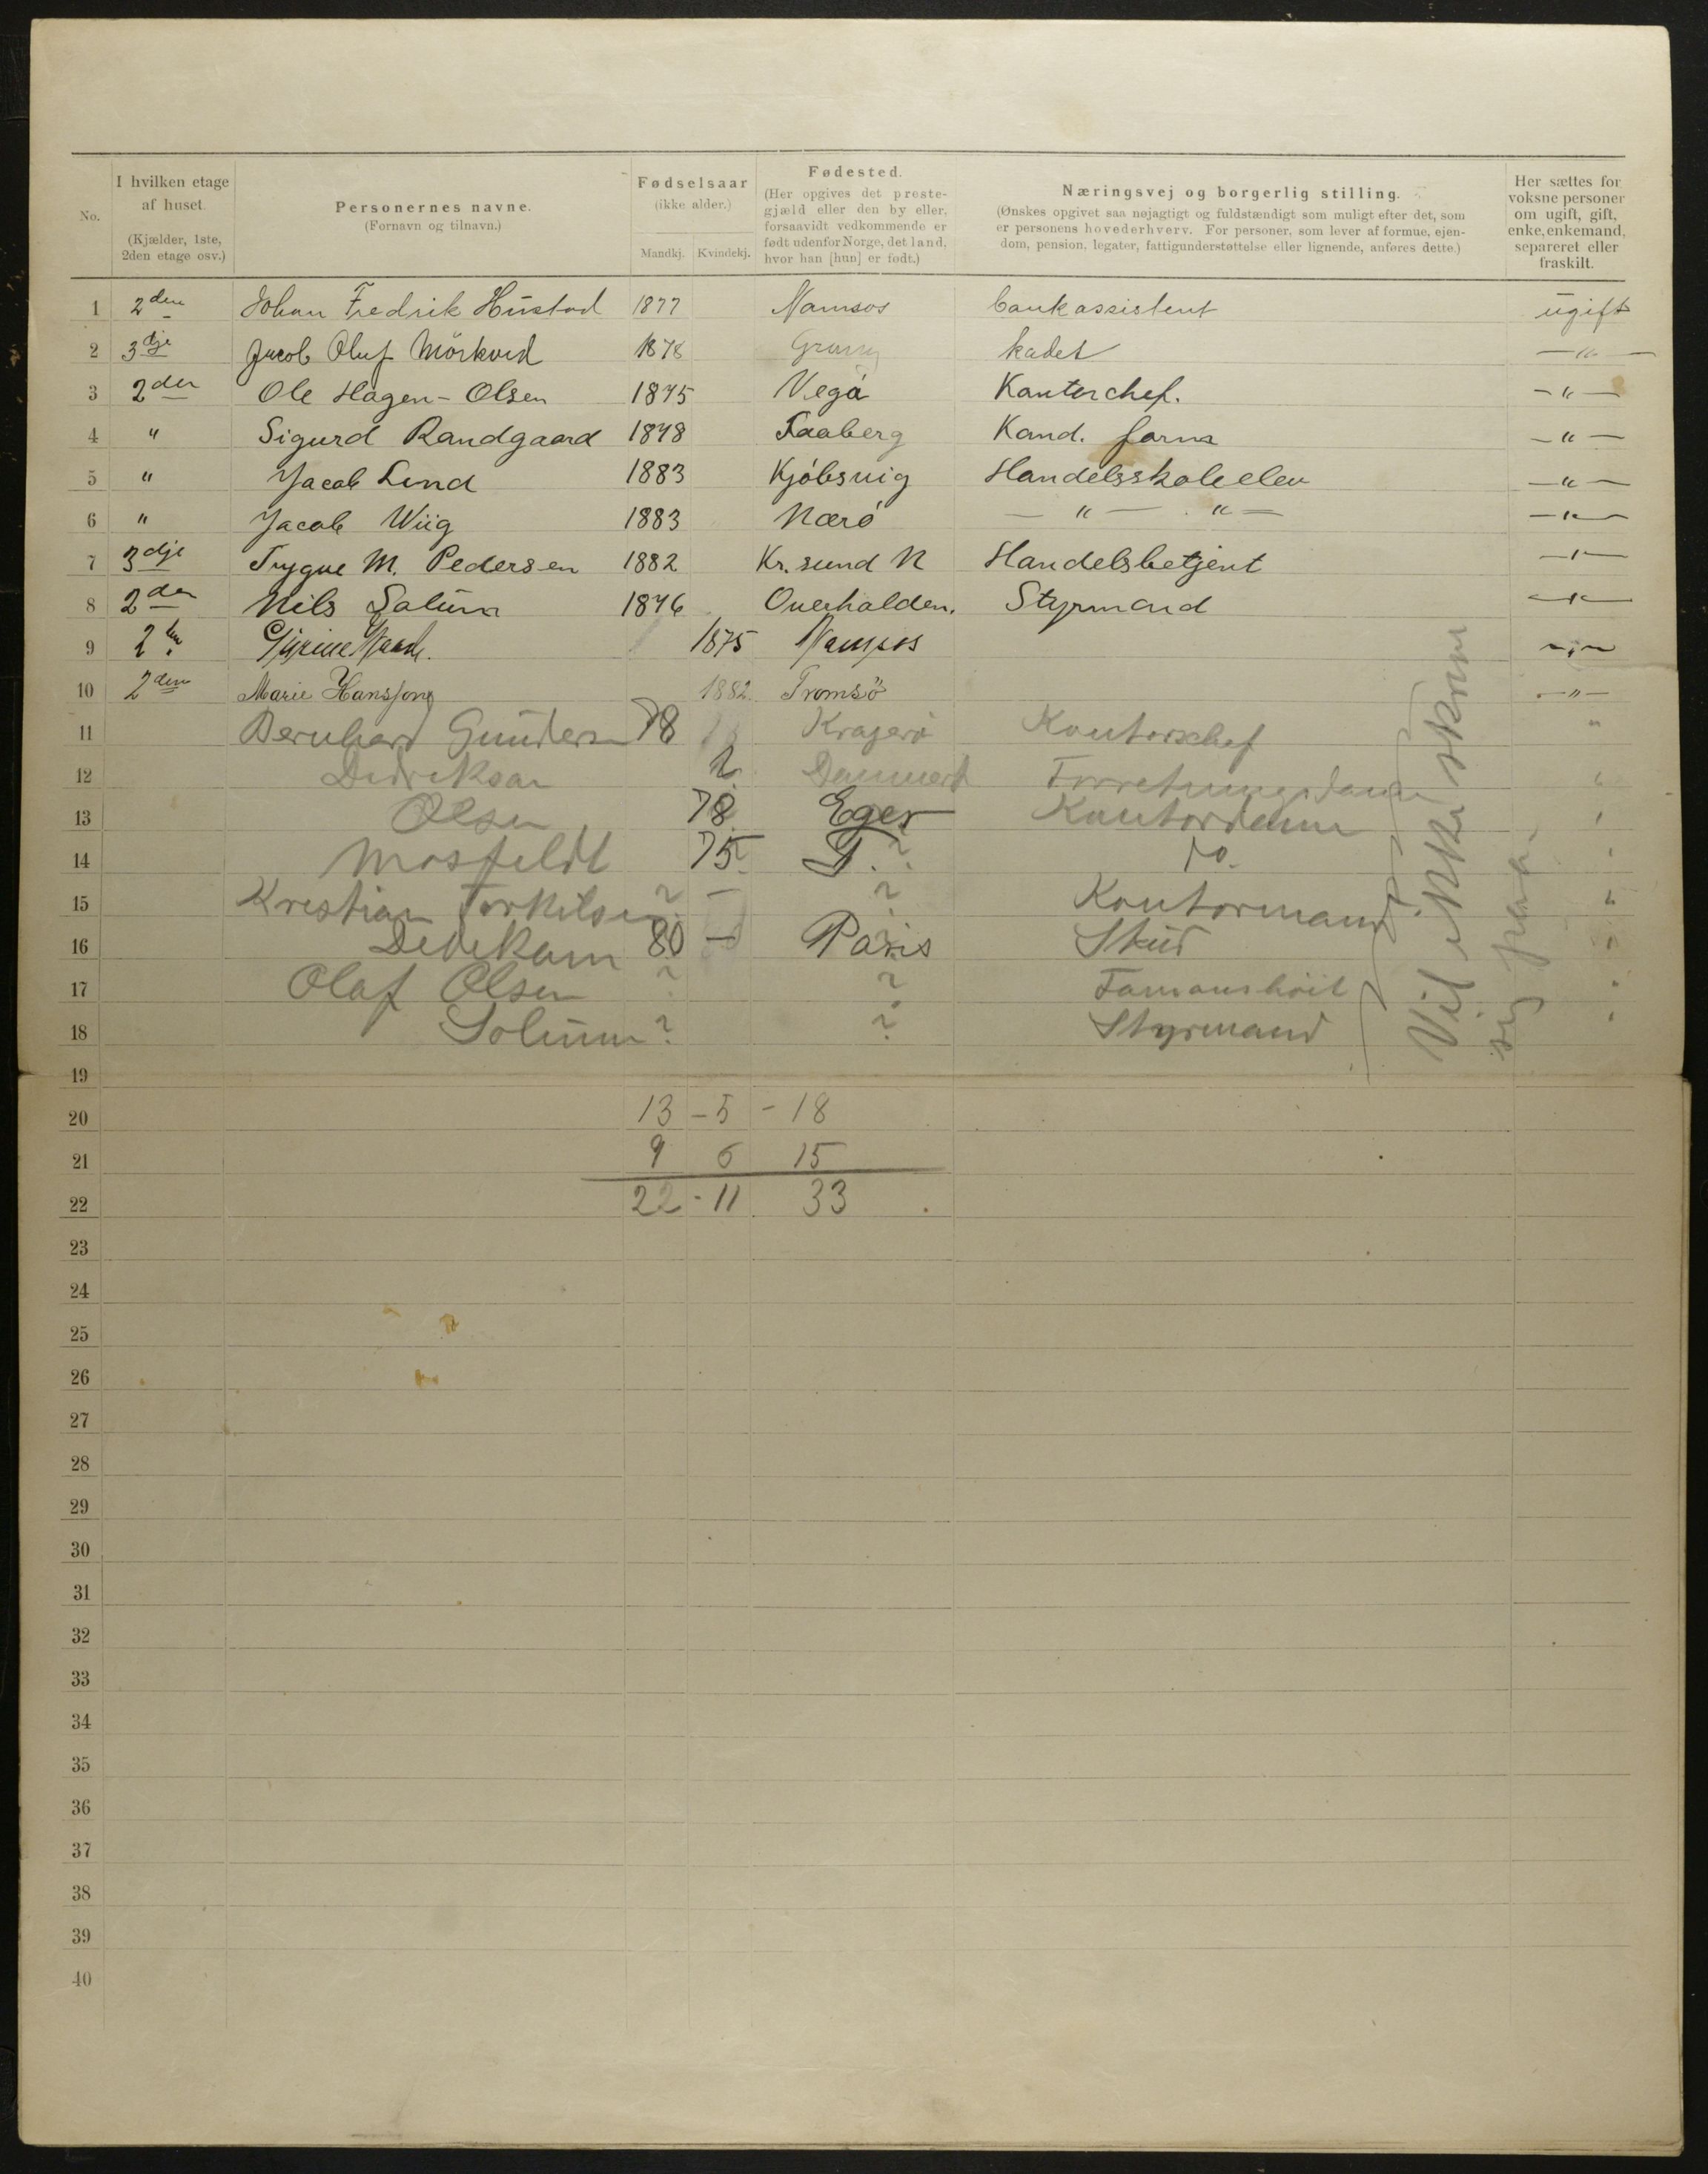 No.
I hvilken etage af huset.
(Kjælder, 1ste, 2den etage osv.)
Personernes navne.
(Fornavn og tilnavn.)
Fødselsaar
(ikke alder.)
Mandkj. Kvindekj.
Fødested.
(Her opgives det preste-
gjæld eller den by eller,
forsaavidt vedkommende er
født udenfor Norge, det land,
hvor han [hun] er født.)
Næringsvej og borgerlig stilling.
(Ønskes opgivet saa nøjagtigt og fuldstændigt som muligt efter det, som
er personens hovederhverv. For personer, som lever af formue, ejen-
dom, pension, legater, fattigunderstøttelse eller lignende, anføres dette.)
Her sættes for
voksne personer
om ugift, gift,
enke, enkemand,
separeret eller
fraskilt.
1 2den Johan Fredrik Hustad 1877 Namsos bankassistent ugift
2 3dje Jacob Oluf Mörkved 1878 kadet — " —
3 2den Ole Hagen-Olsen 1875 Vega Kontorchef. — " —
4 " Sigurd Randgaard 1878 Faaberg Kand. farm — " —
5 " Jacob Lind 1883 Kjöbsvig Handelsskoleelev — " —
6 " Jacob Wiig 1883 Nærö — " — " — — " —
7 3dje Trygve M. Pedersen 1882 Kr. sund N Handelsbetjent — " —
8 2den Nils Solum 1876 Overhalden. Styrmand — " —
9 2den 1875 Namsos — " —
10 2den Marie Hanssong 1882 Tromsö — " —
11 Bernhard Gundersen 78 Kragerö Kontorschef "
12 Didriksen ? Danmark Forretningsdame "
13 Olsen 78 Eger Kontordame "
14 Mosfeldt 75 T. ? do. "
15 Kristian Torkilsen ? — ? Kontormand "
16 Dedekam 80 — Paris Stud "
17 Olaf Olsen ? ? "
18 Solum ? ? Styrmand "
Vil ikke skrive
sig paa.
19
20 13 – 5 – 18
21 9 6 15
22 22 - 11 33
23
24
25
26
27
28
29
30
31
32
33
34
35
36
37
38
39
40